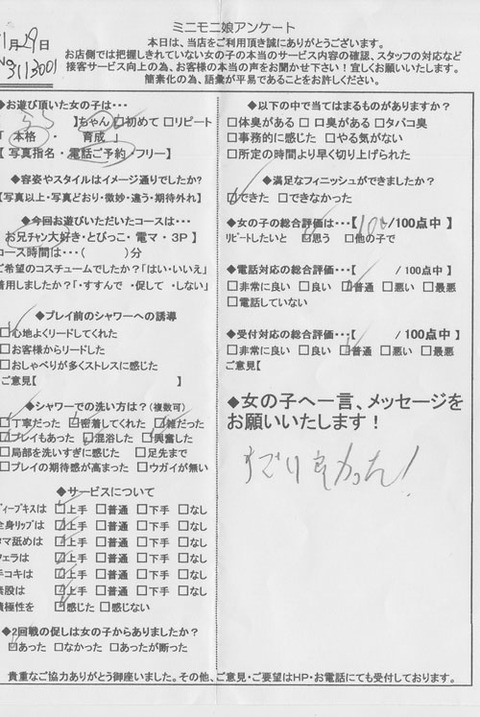 ミニモニ娘アンケート
11月29日
本日は、当店をご利用頂き誠にありがとうございます。
お店側では把握しきれていない女の子の本当のサービス内容の確認、スタッフの対応など
接客サービス向上の為、お客様の本当の声をお聞かせ下さい！宜しくお願いいたします。
簡素化の為、語彙が平易であることをお許しください。
No3113001
◆お遊び頂いた女の子は・・・
】ちゃん □初めて □リピート
「 本格 ・ 育成 」
【 写真指名・電話ご予約・フリー】
◆容姿やスタイルはイメージ通りでしたか?
【写真以上・写真どおり・微妙・違う・期待外れ】
◆今回お遊びいただいたコースは・・・
お兄チャン大好き・とびっこ・電マ・3P 】
コース時間は・・・( )分
ご希望のコスチュームでしたか?「はい・いいえ」
着用しましたか?「・すすんで ・促して ・しない」
◆プレイ前のシャワーへの誘導
□心地よくリードしてくれた
□お客様からリードした
□おしゃべりが多くストレスに感じた
ご意見【 】
◆シャワーでの洗い方は？(複数可)
□丁寧だった □密着してくれた □雑だった
□プレイもあった □混浴した □興奮した
□局部を洗いすぎに感じた □足先まで
□プレイの期待感が高まった □ウガイが無い
◆サービスについて
ディープキスは □上手 □普通 □下手 □なし
全身リップは □上手 □普通 □下手 □なし
タマ舐めは □上手 □普通 □下手 □なし
フェラは □上手 □普通 □下手 □なし
手コキは □上手 □普通 □下手 □なし
素股は □上手 □普通 □下手 □なし
積極性を □感じた □感じない
◆2回戦の促しは女の子からありましたか？
□あった □なかった □あったが断った
◆以下の中で当てはまるものがありますか？
□体臭がある □ 口臭がある □タバコ臭
□事務的に感じた □やる気がない
□所定の時間より早く切り上げられた
◆満足なフィニッシュができましたか？
□できた □できなかった
◆女の子の総合評価は・・・【 100 /100点中 】
リピートしたいと □思う □他の子で
◆電話対応の総合評価・・・【 / 100点中】
□非常に良い □良い □普通 □悪い □最悪
□電話していない
◆受付対応の総合評価・・・【 / 100点中】
□非常に良い □良い □普通 □悪い □最悪
ご意見【
◆女の子へ一言、メッセージを
お願いいたします！
すごく良かった！
貴重なご協力ありがとう御座いました。その他、ご意見・ご要望はHP・お電話にても受付しております。